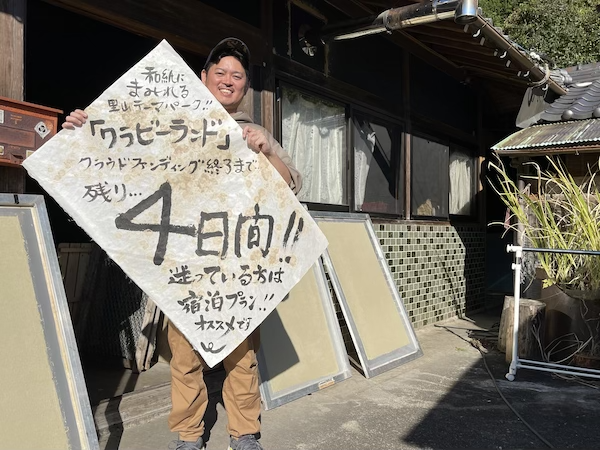 和紙に
まみれる
里山テーマパーク!!
「ワラビーランド」
クラウドファンディング終了まで
残り…
4日間!!
迷っている方は
宿泊プラン!!
オススメです